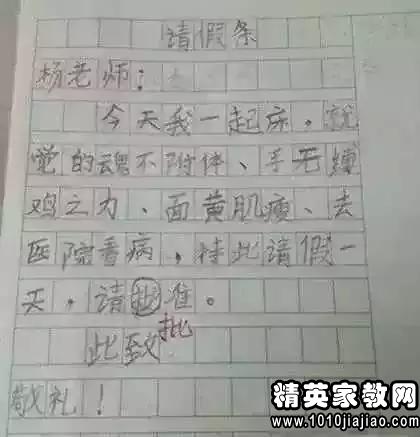 请假条
杨老师：
今天我一起床，就
觉的魂不附体、手无缚
鸡之力、面黄肌瘦、去
医院看病，持此请假一
天，请批准。
此致 批
敬礼！
精英家教网
www.1010jiajiao.com